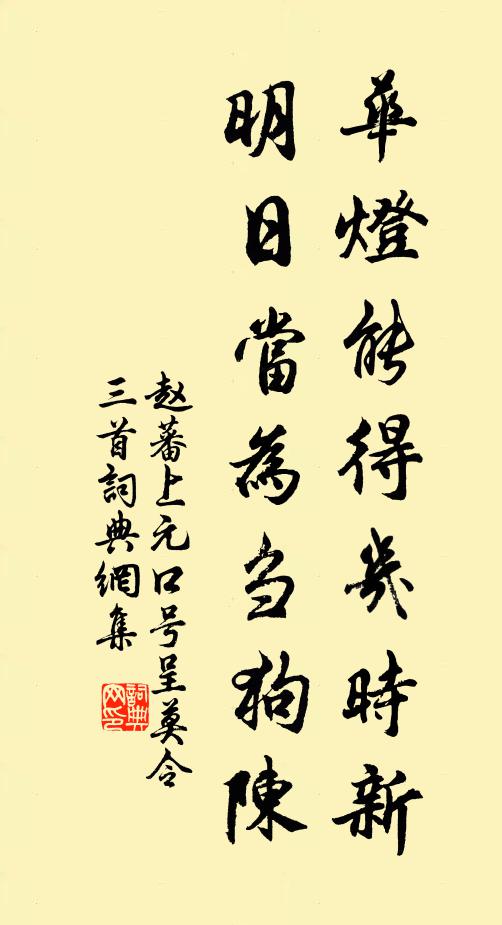 華燈能得幾時新
明日當為芻狗陳
赵蕃上元口号呈莫令
三首詞典網集
詞典网印